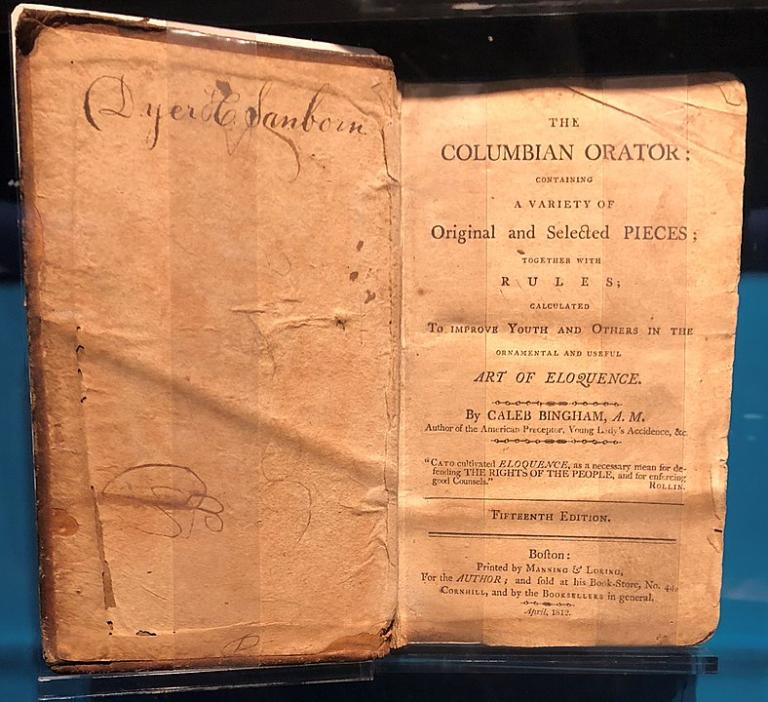 Dyer H. Sanborn
THE
COLUMBIAN ORATOR:
CONTAINING
A VARIETY OF
Original and Selected PIECES;
TOGETHER WITH
RULES;
CALCULATED
TO IMPROVE YOUTH AND OTHERS IN THE
ORNAMENTAL AND USEFUL
ART OF ELOQUENCE.
By CALEB BINGHAM, A. M.
Author of the American Preceptor, Young Lady's Accidence, &c.
"CATO cultivated ELOQUENCE, as a necessary mean for de-
fending THE RIGHTS OF THE PEOPLE, and for enforcing
good Counsels."
ROLLIN.
FIFTEENTH EDITION.
Boſton:
Printed by MANNING & LORING,
For the AUTHOR; and ſold at his Book-Store, No. 44,
CORNHILL, and by the BOOKSELLERS in general.
April, 1812.